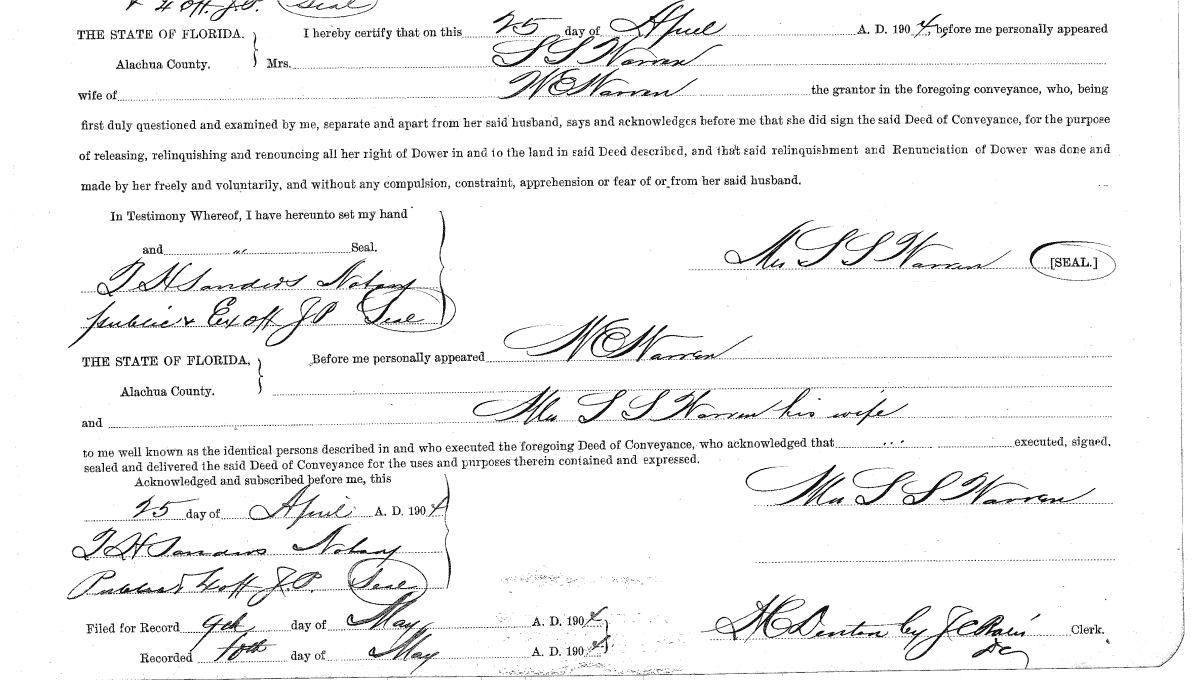 & Ex Off. J.P. Seal
THE STATE OF FLORIDA. I hereby certify that on this 25 day of April A. D. 1904, before me personally appeared
Alachua County. Mrs. S S Warren
wife of W E Warren the grantor in the foregoing conveyance, who, being
first duly questioned and examined by me, separate and apart from her said husband, says and acknowledges before me that she did sign the said Deed of Conveyance, for the purpose
of releasing, relinquishing and renouncing all her right of Dower in and to the land in said Deed described, and that said relinquishment and Renunciation of Dower was done and
made by her freely and voluntarily, and without any compulsion, constraint, apprehension or fear of or from her said husband.
In Testimony Whereof, I have hereunto set my hand
and Seal.
Mrs S S Warren [SEAL.]
T H Sanders Notary
public & Ex off J P Seal
THE STATE OF FLORIDA, Before me personally appeared W E Warren
Alachua County.
and Mrs S S Warren his wife
to me well known as the identical persons described in and who executed the foregoing Deed of Conveyance, who acknowledged that executed, signed,
sealed and delivered the said Deed of Conveyance for the uses and purposes therein contained and expressed.
Acknowledged and subscribed before me, this
Mrs S S Warren
25 day of April A. D. 1904
T H Sanders Notary
Public & Ex off J.P. Seal
Filed for Record 9th day of May A. D. 1904
H C Denton by J C Clerk.
Recorded 10th day of May A. D. 1904. DC